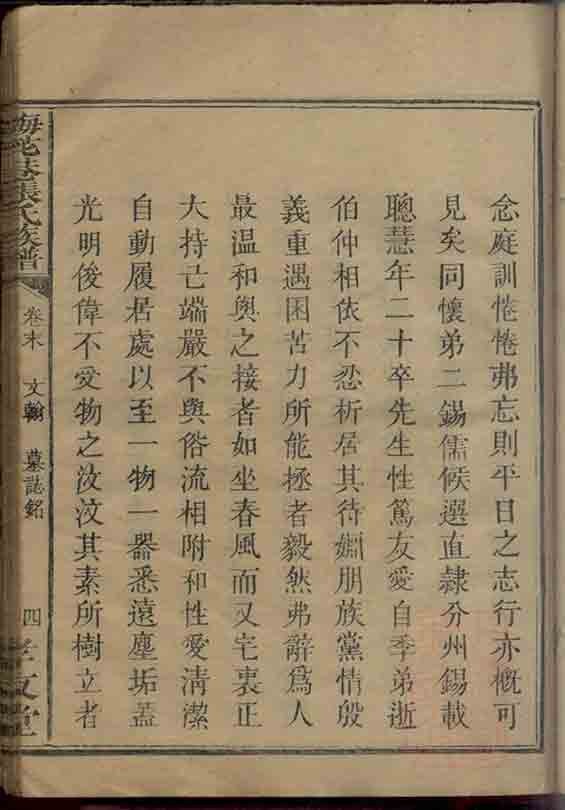 念庭訓惓惓弗忘則平日之志行亦概可
見矣同懷弟二錫儒候選直隸分州錫載
聰慧年二十卒先生性篤友愛自季弟逝
伯仲相依不忍析居其待婣朋族黨情殷
義重遇困苦力所能拯者毅然弗辭爲人
最温和與之接者如坐春風而又宅衷正
大持己端嚴不與俗流相附和性愛清潔
自動履居處以至一物一器悉遠塵垢蓋
光明俊偉不受物之汶汶其素所樹立者
張氏族譜
卷末 文翰 墓誌銘
四